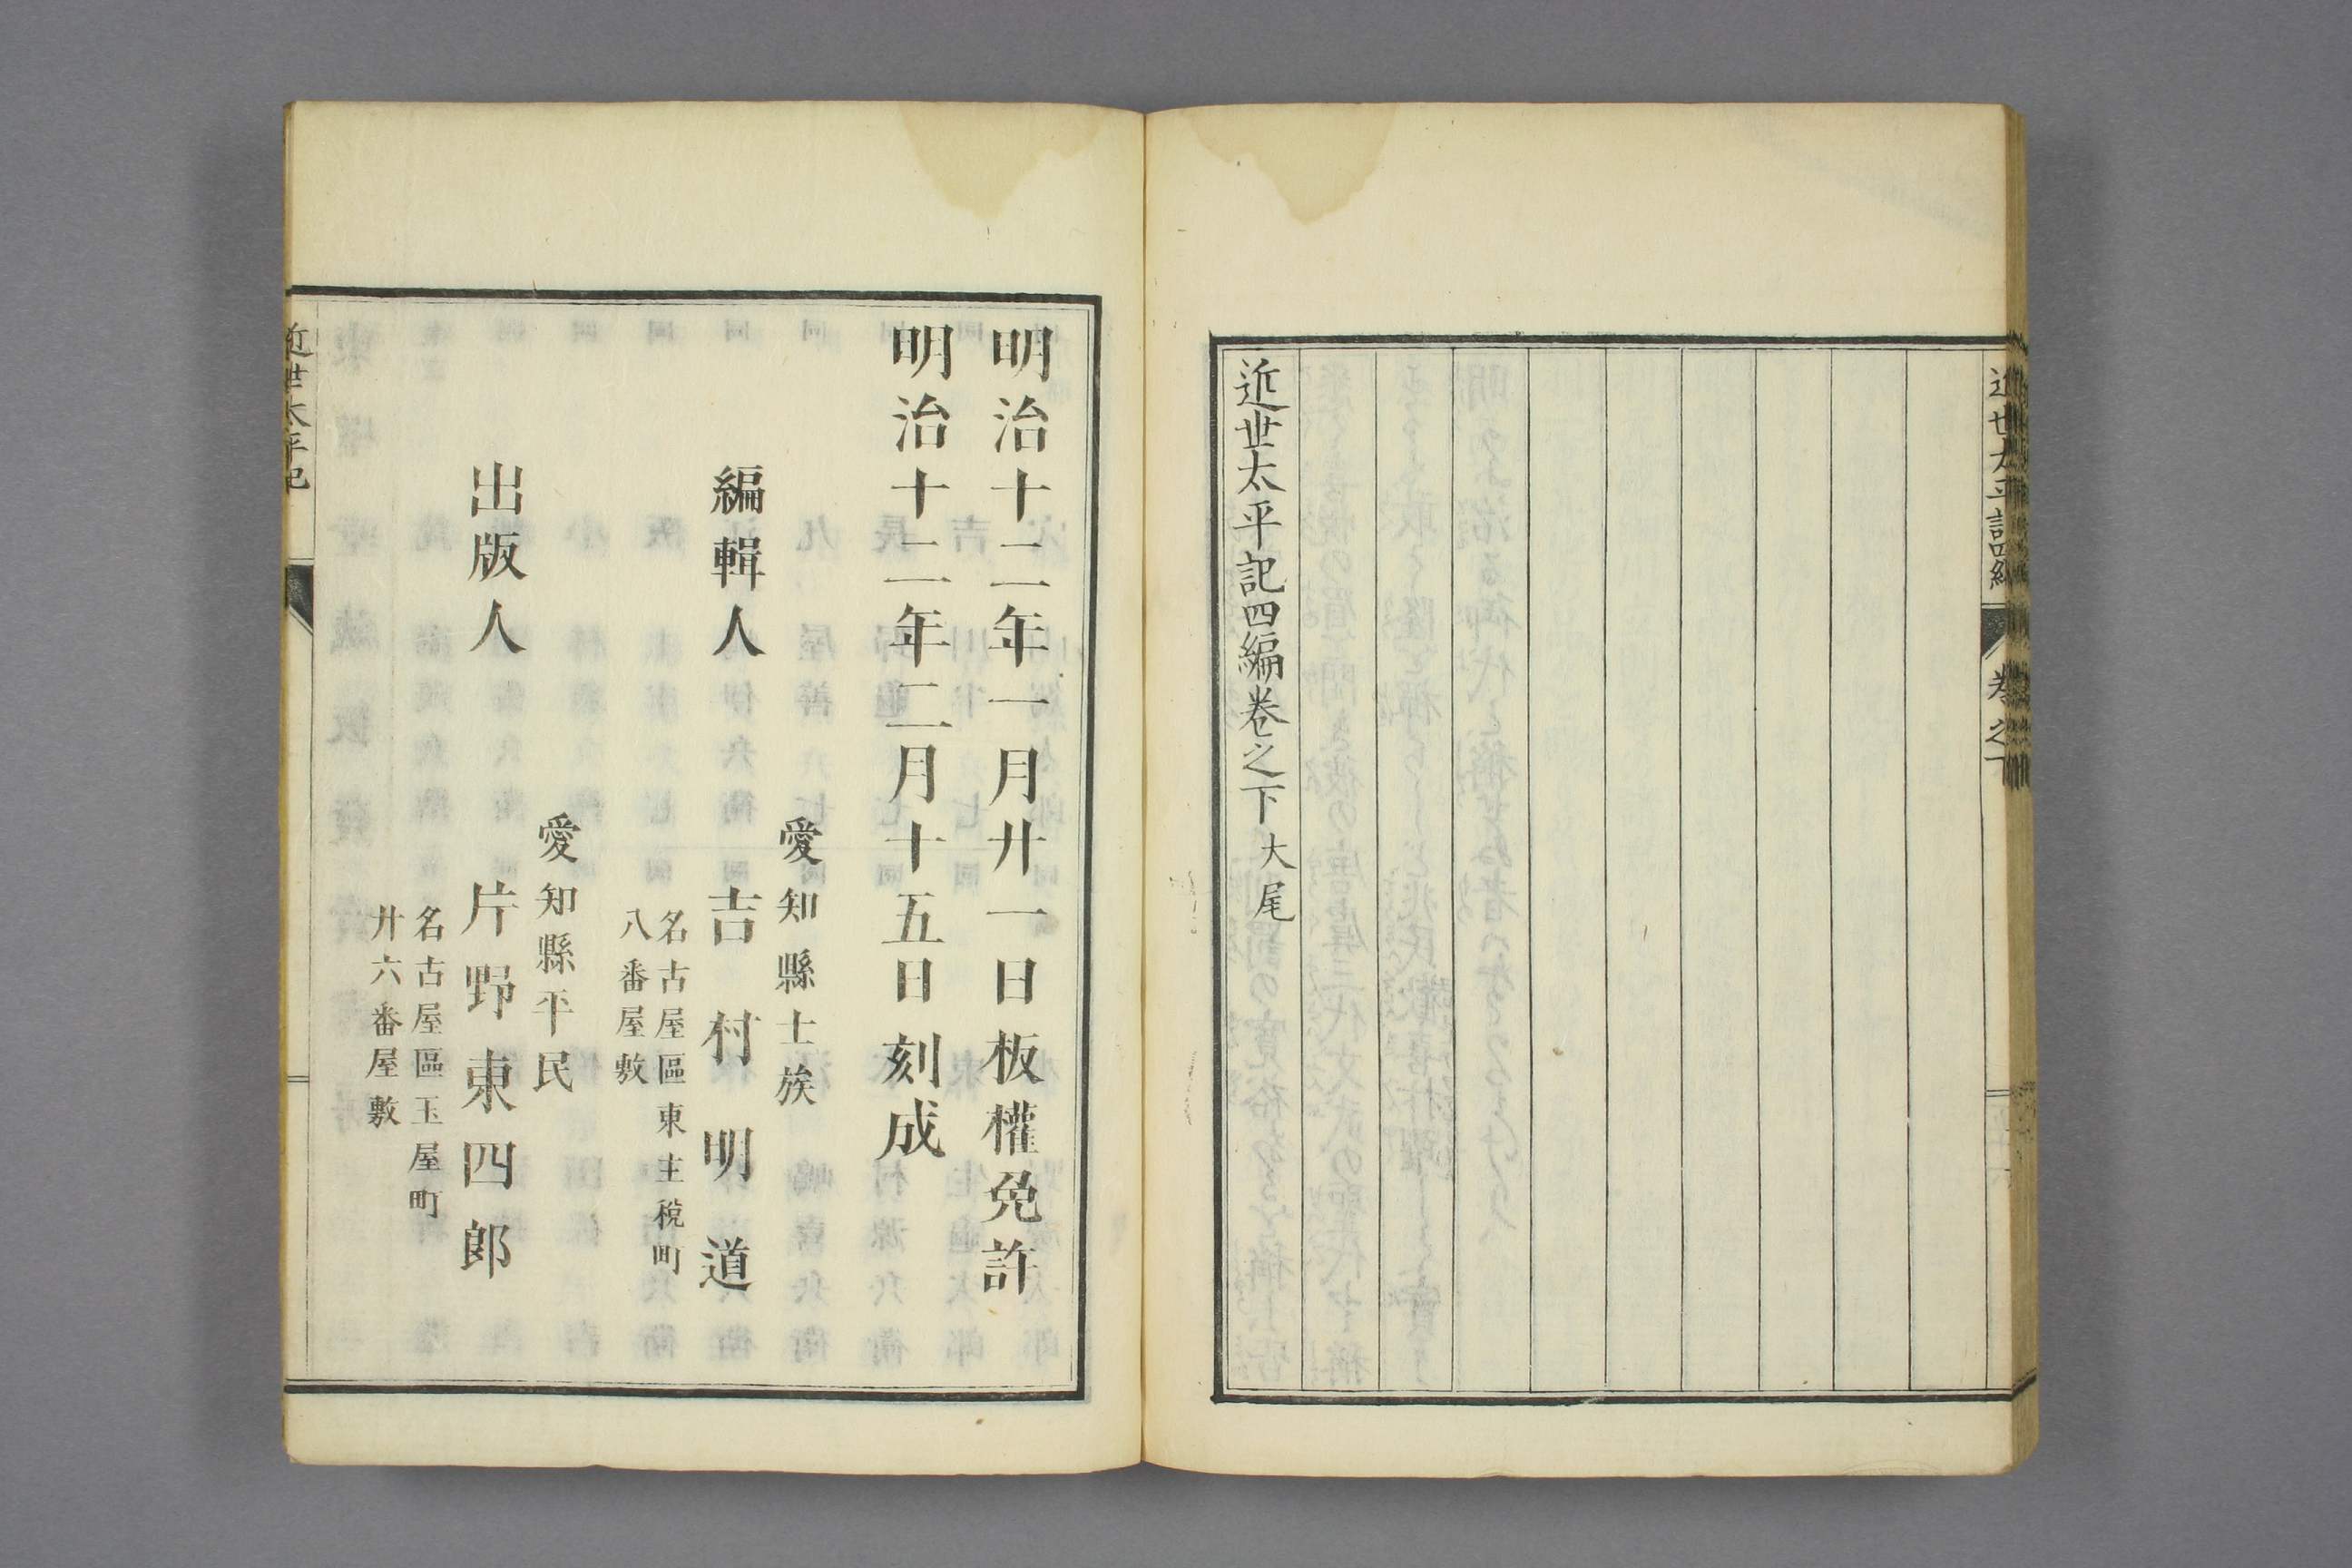 近世太平記四編
卷之下
近世太平記四編卷之下大尾
明治十二年一月廿一日板權免許
明治十二年二月十五日刻成
愛知縣士族
編輯人 吉村明道
名古屋區東主税町
八番屋敷
愛知縣平民
出版人 片野東四郎
名古屋區玉屋町
廾六番屋敷
近世太平記